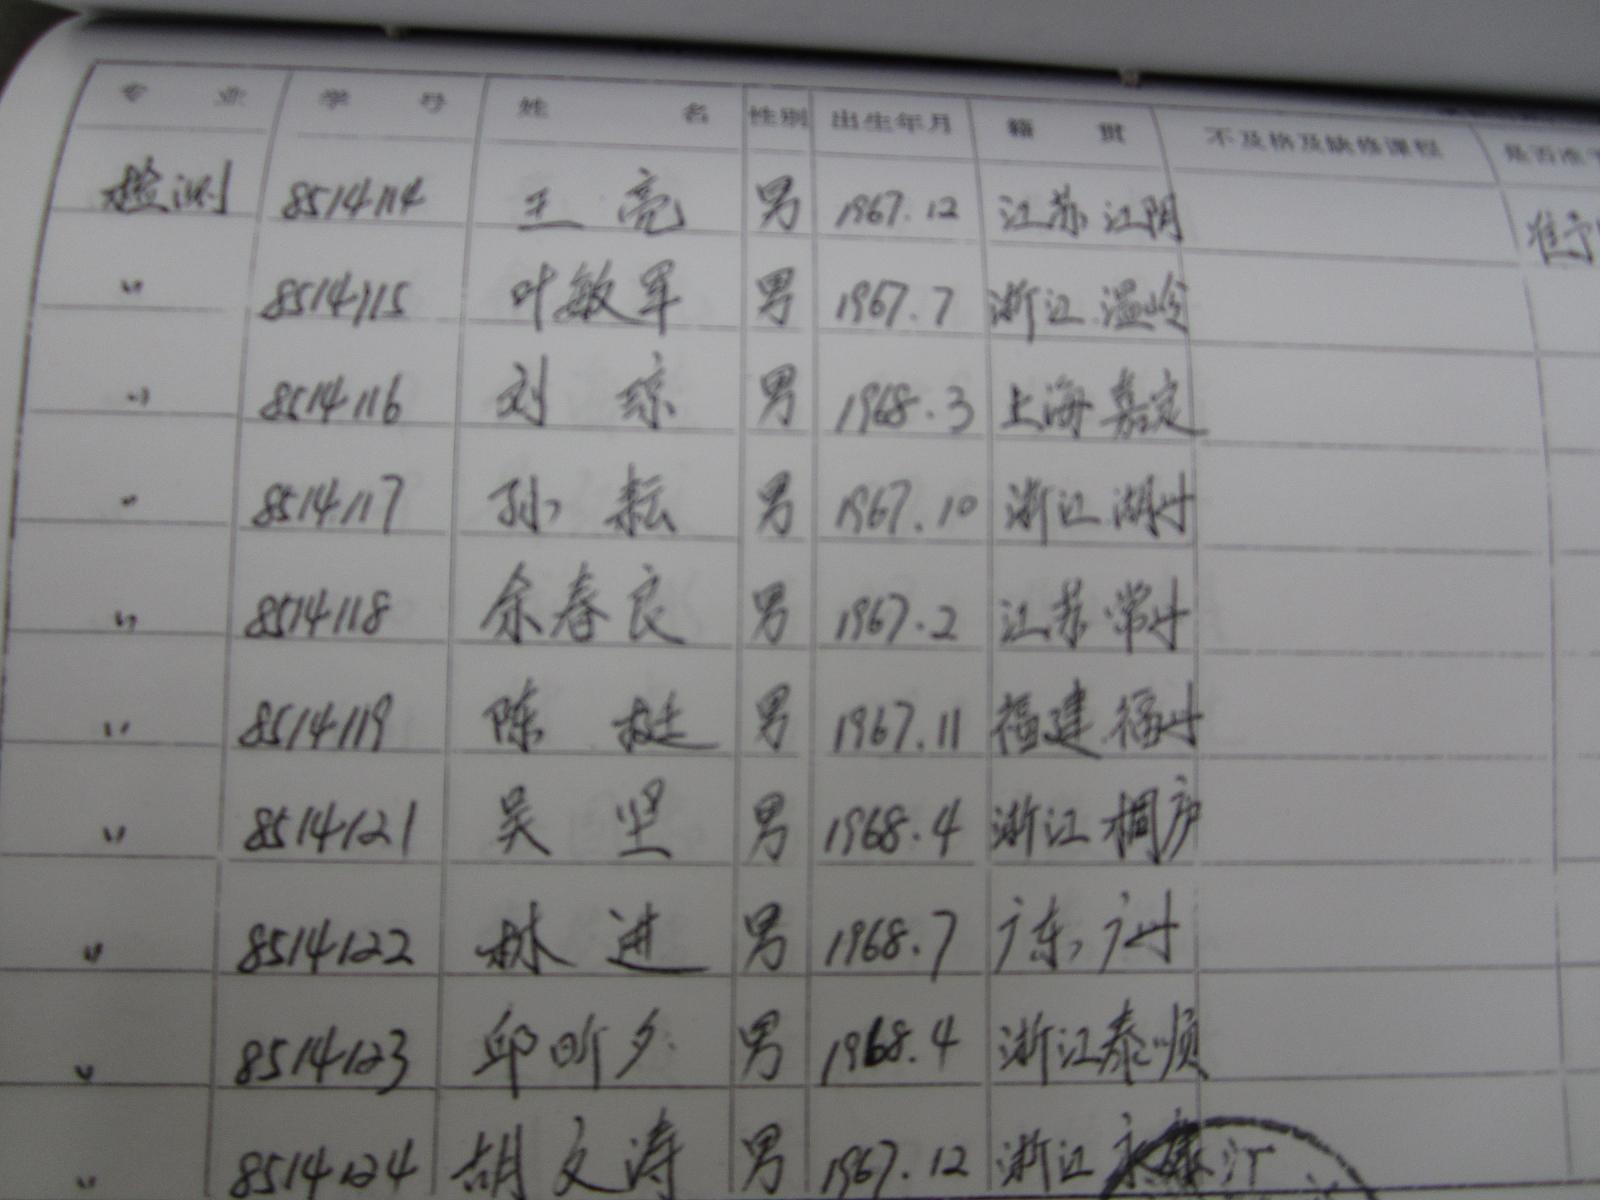 专 业 学 号 姓 名 性别 出生年月 籍 贯 不及格及缺修课程 是否准予
检测 8514114 王 亮 男 1967.12 江苏 江阴 准予
〃 8514115 叶敏军 男 1967.7 浙江 温岭
〃 8514116 刘 琼 男 1968.3 上海 嘉定
〃 8514117 孙 耘 男 1967.10 浙江 湖州
〃 8514118 余春良 男 1967.2 江苏 常州
〃 8514119 陈 挺 男 1967.11 福建 福州
〃 8514121 吴 坚 男 1968.4 浙江 桐庐
〃 8514122 林 进 男 1968.7 广东 广州
〃 8514123 邱昕夕 男 1968.4 浙江泰顺
〃 8514124 胡文涛 男 1967.12 浙江 永康
江